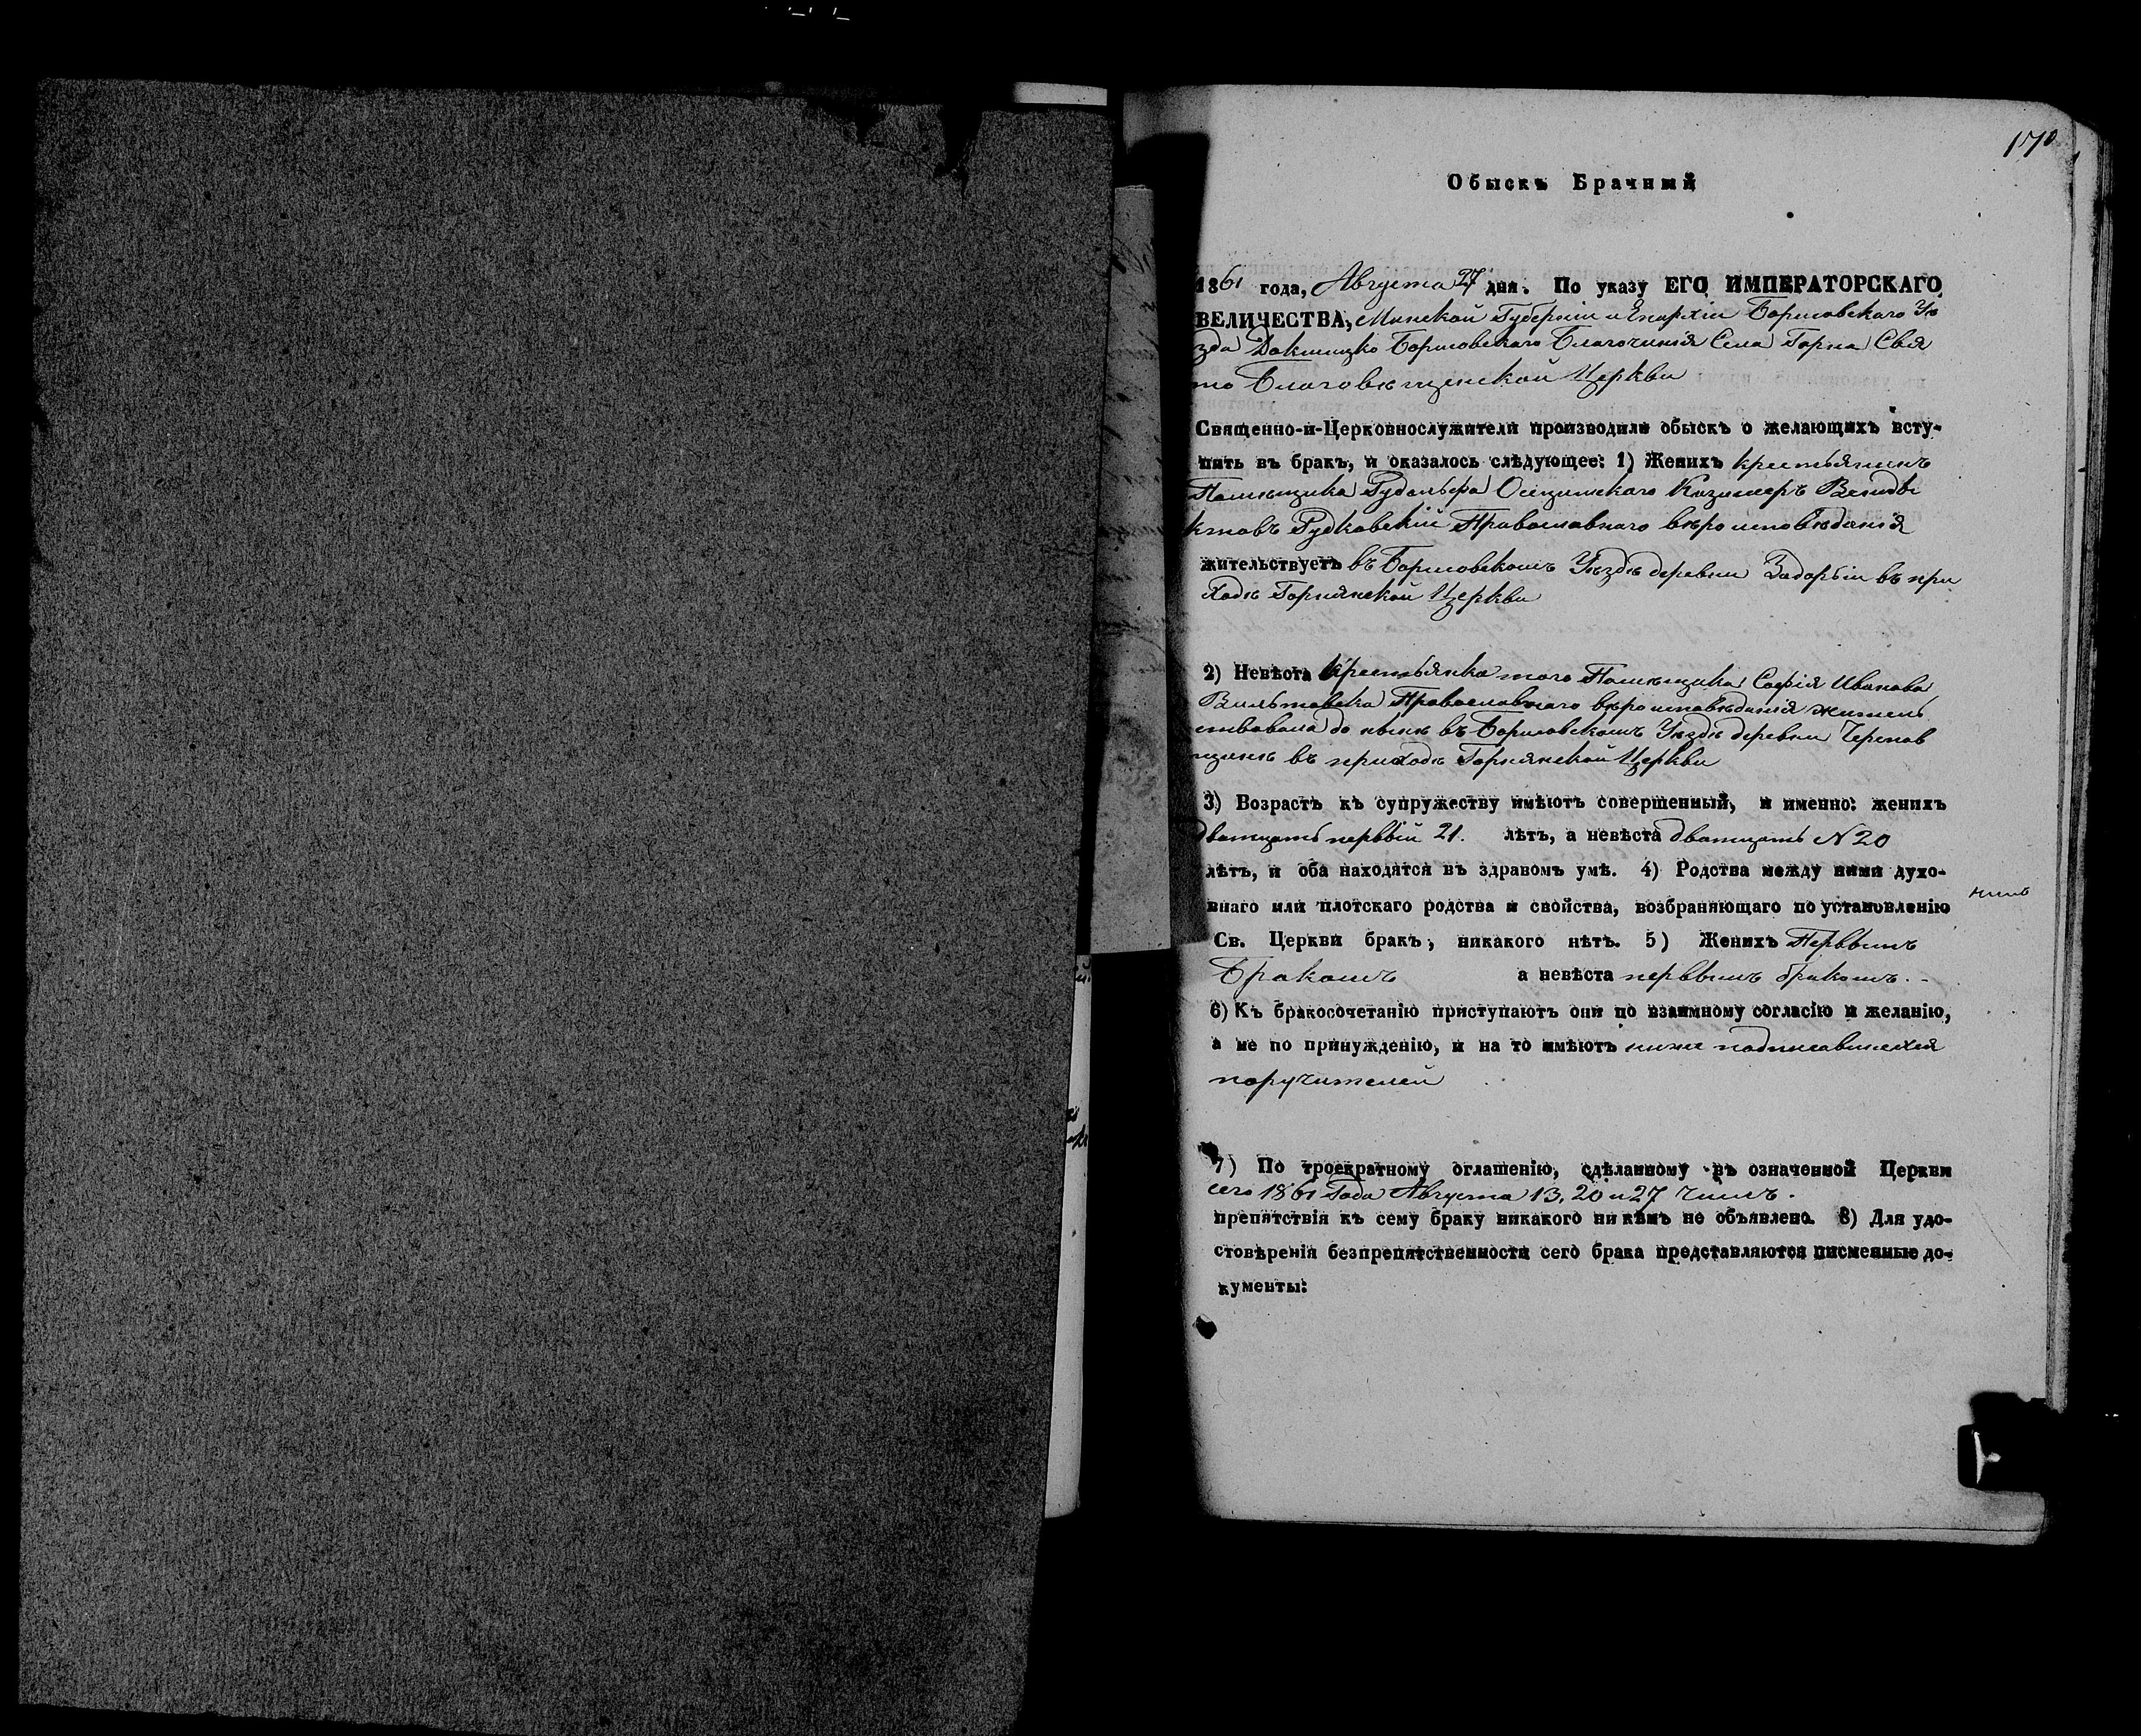 170
Обыскъ Брачный
1861 года, Августа 27 дня. По указу ЕГО ИМПЕРАТОРСКАГО
ВЕЛИЧЕСТВА, Минской Губерніи и Епархіи Борисовскаго Уѣ
зда Докшицко Борисовскаго Благочинія Села Горна Свя
то Благовѣщенской Церкви
Священно-и-Церковнослужители производили обыскъ о желающихъ всту-
пить въ бракъ, и оказалось слѣдующее: 1) Женихъ крестьянинъ
Помѣщика Рудольфа Казимеръ Венедѣ
ктовъ Рудковскій Православнаго вѣроисповѣданія
жительствуетъ въ Борисовскомъ Уѣздѣ деревни Задорьи въ при
ходѣ Горнянской Церкви
2) Невѣста крестьянка того Помѣщика Софія Иванова
Православнаго вѣроисповѣданія житель
ствовала до нынѣ въ Борисовскомъ Уѣздѣ деревни Черепов
щинѣ въ приходѣ Горнянской Церкви
3) Возрастъ къ супружеству имѣютъ совершенный, и именно: женихъ
дватцать первый 21. лѣтъ, а невѣста дватцать N 20
лѣтъ, и оба находятся въ здравомъ умѣ. 4) Родства между ними духо-
внаго или плотскаго родства и свойства, возбраняющаго по установленію
Св. Церкви бракъ, никакого нѣтъ. 5) Женихъ Первымъ
Бракомъ а невѣста первымъ бракомъ.
6) Къ бракосочетанію приступаютъ они по взаимному согласію и желанію,
а не по принужденію, и на то имѣютъ ниже подписавшихся
поручителей
7) По троекратному оглашенію, сдѣланному въ означенной Церкви
сего 1861 Года Августа 13, 20 и 27 числъ.
препятствія къ сему браку никакого ни кѣмъ не объявлено. 8) Для удо-
стовѣренія безпрепятственности сего брака представляются писменные до-
кументы: